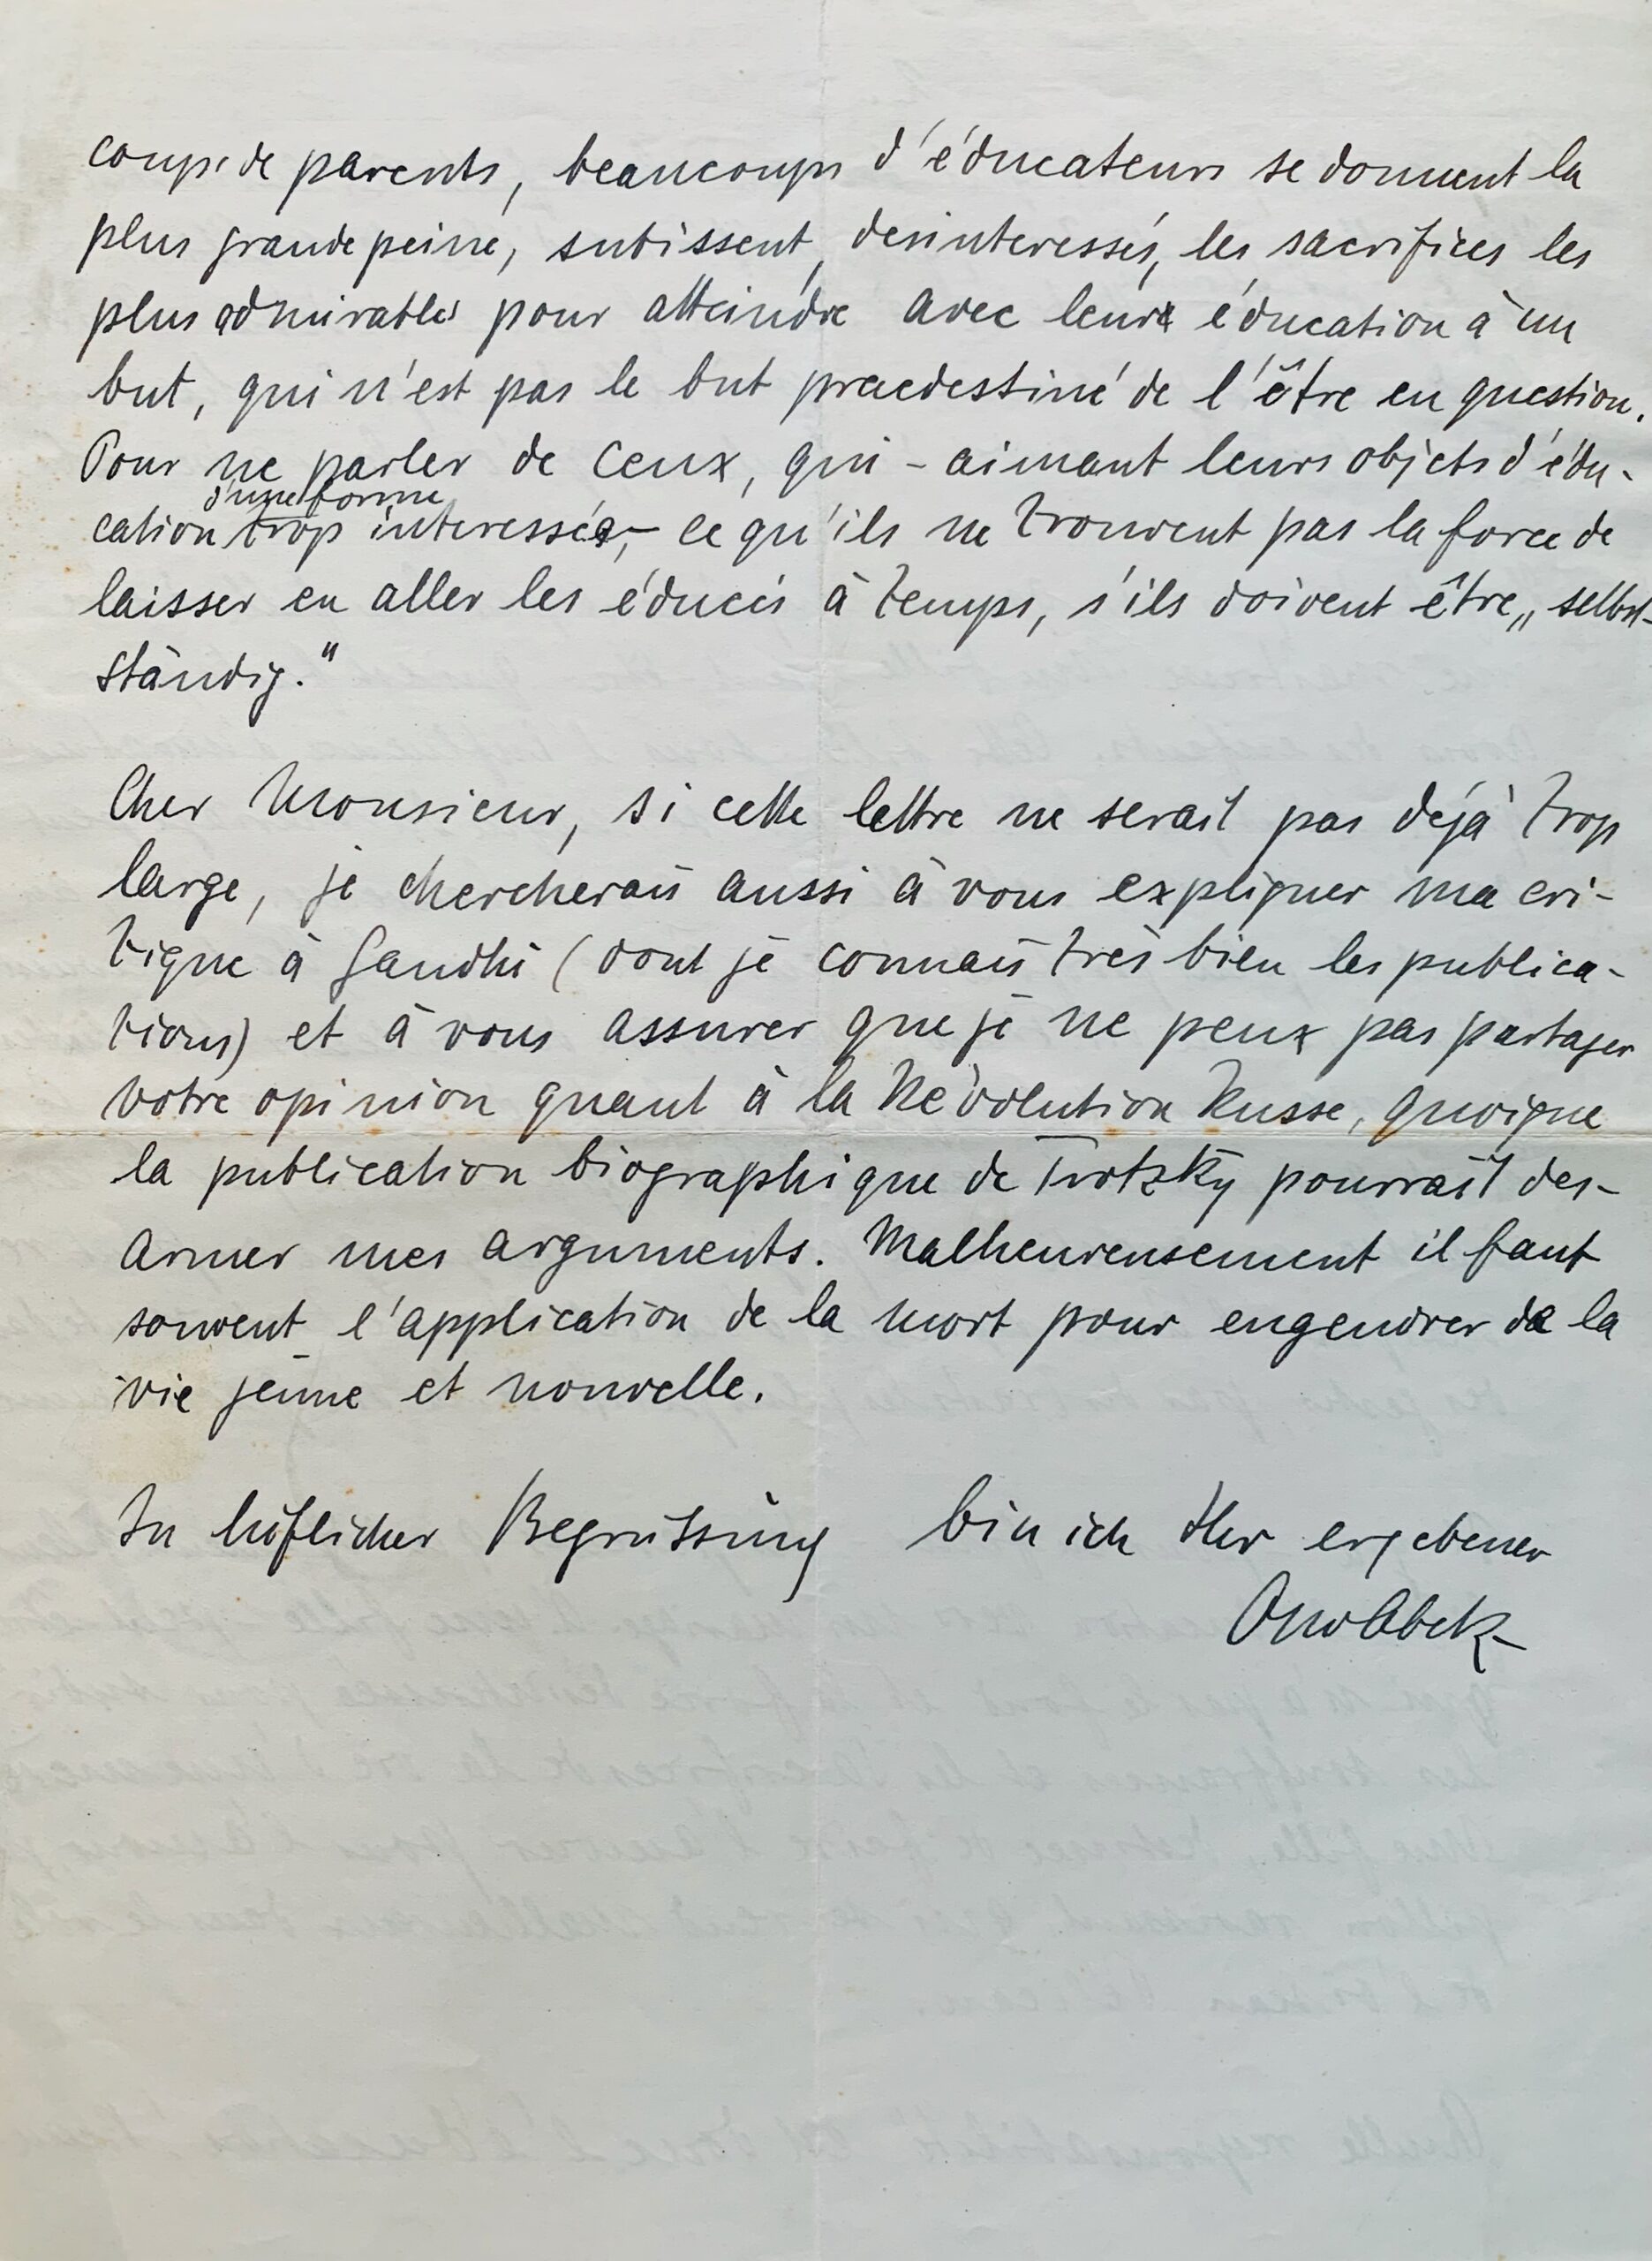 coups de parents, beaucoups d'éducateurs se donnent la
plus grande peine, subissent, desinteressés, les sacrifices les
plus admirables pour atteindre avec leurs éducation à un
but, qui n'est pas le but praedestiné de l'être en question.
Pour ne parler de ceux, qui - aimant leurs objets d'édu-
d'une forme
cation trop interessée, - ce qu'ils ne trouvent pas la force de
laisser en aller les éducés à temps, s'ils doivent être „selbst-
ständig."
Cher Monsieur, si cette lettre ne serait pas déjà trop
large, je chercherais aussi à vous expliquer ma cri-
tique à Gandhi (dont je connais très bien les publica-
tions) et à vous assurer que je ne peux pas partager
votre opinion quant à la Révolution Russe, quoique
la publication biographique de Trotzky pourrait des-
armer mes arguments. Malheureusement il faut
souvent l'application de la mort pour engendrer de la
vie jeune et nouvelle.
In höflicher Begrüssung bin ich Ihr ergebener